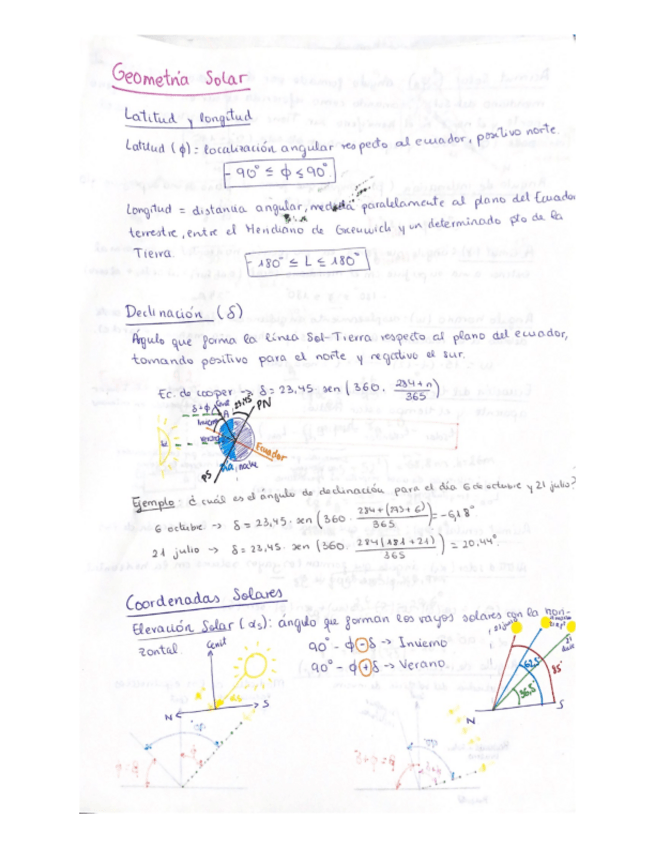 Geometría Solar
Latitud y longitud
Latitud (ϕ): localización angular respecto al ecuador, positivo norte.
-90° ≤ ϕ ≤ 90°
Longitud = distancia angular, medida paralelamente al plano del Ecuador
terrestre, entre el Meridiano de Greenwich y un determinado pto de la
Tierra.
-180° ≤ L ≤ 180°
Declinación (δ)
Ángulo que forma la línea Sol-Tierra respecto al plano del ecuador,
tomando positivo para el norte y negativo el sur.
Ec. de cooper → δ = 23,45 sen (360 · 284+n / 365)
δ+ϕ
23,45
PN
A
Ecuador
PS
Día, noche
Ejemplo: ¿cuál es el ángulo de declinación para el día 6 de octubre y 21 julio?
6 octubre → δ = 23,45 · sen (360 · 284+(273+6) / 365) = -6,18°
21 julio → δ = 23,45 · sen (360 · 284(181+21) / 365) = 20.44°.
Coordenadas Solares
Elevación Solar (αs): ángulo que forman los rayos solares con la hori-
zontal
90° - ϕ - δ → Invierno
90° - ϕ + δ → Verano
Cenit
αs
N
S
21 junio
21
62,5°
85°
36,5°
N
S